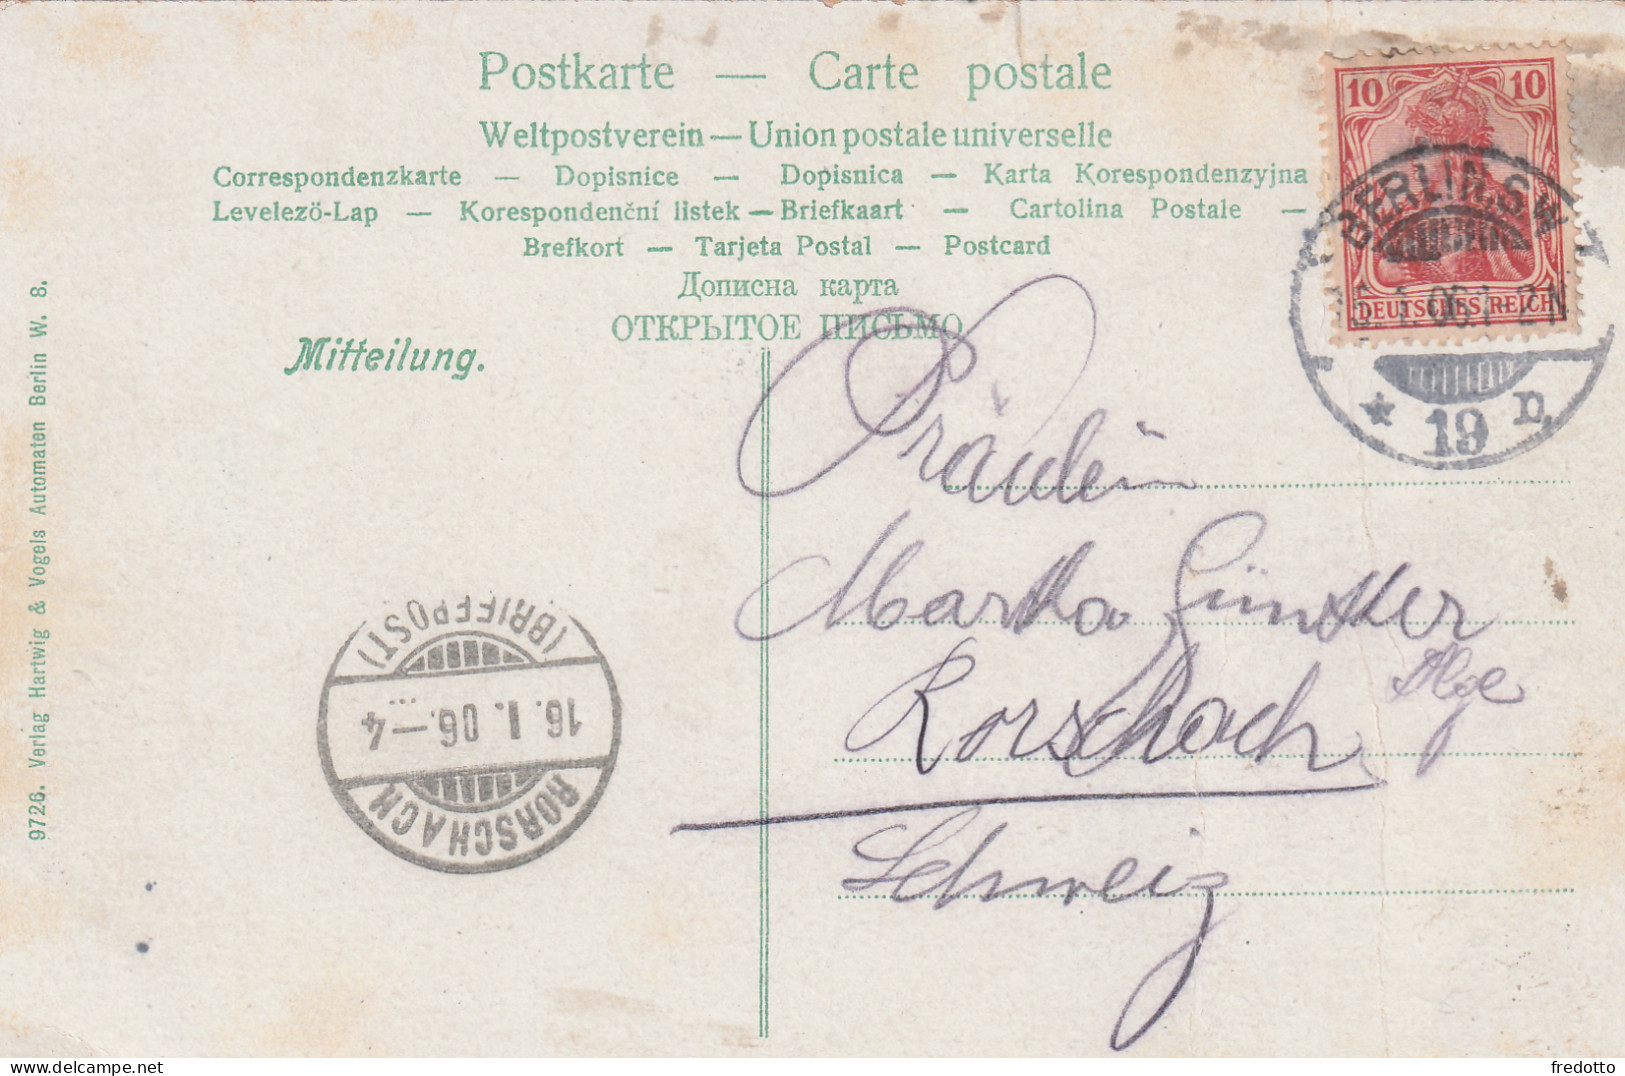 Postkarte — Carte postale
Weltpostverein — Union postale universelle
Correspondenzkarte — Dopisnice — Dopisnica — Karta Korespondenzyjna
Levelezö-Lap — Korespondenční listek — Briefkaart — Cartolina Postale —
Brefkort — Tarjeta Postal — Postcard
Дописна карта
ОТКРЫТОЕ ПИСЬМО
Mitteilung.
10 10
DEUTSCHES REICH
BERLIN.S.W
.1.06.1-2N
* 19 n.
Fräulein
Martha Günther
Rorschach
Schweiz
(BRIEFPOST)
16. I. 06.–4
RORSCHACH
9726. Verlag Hartwig & Vogels Automaten Berlin W. 8.
fredotto